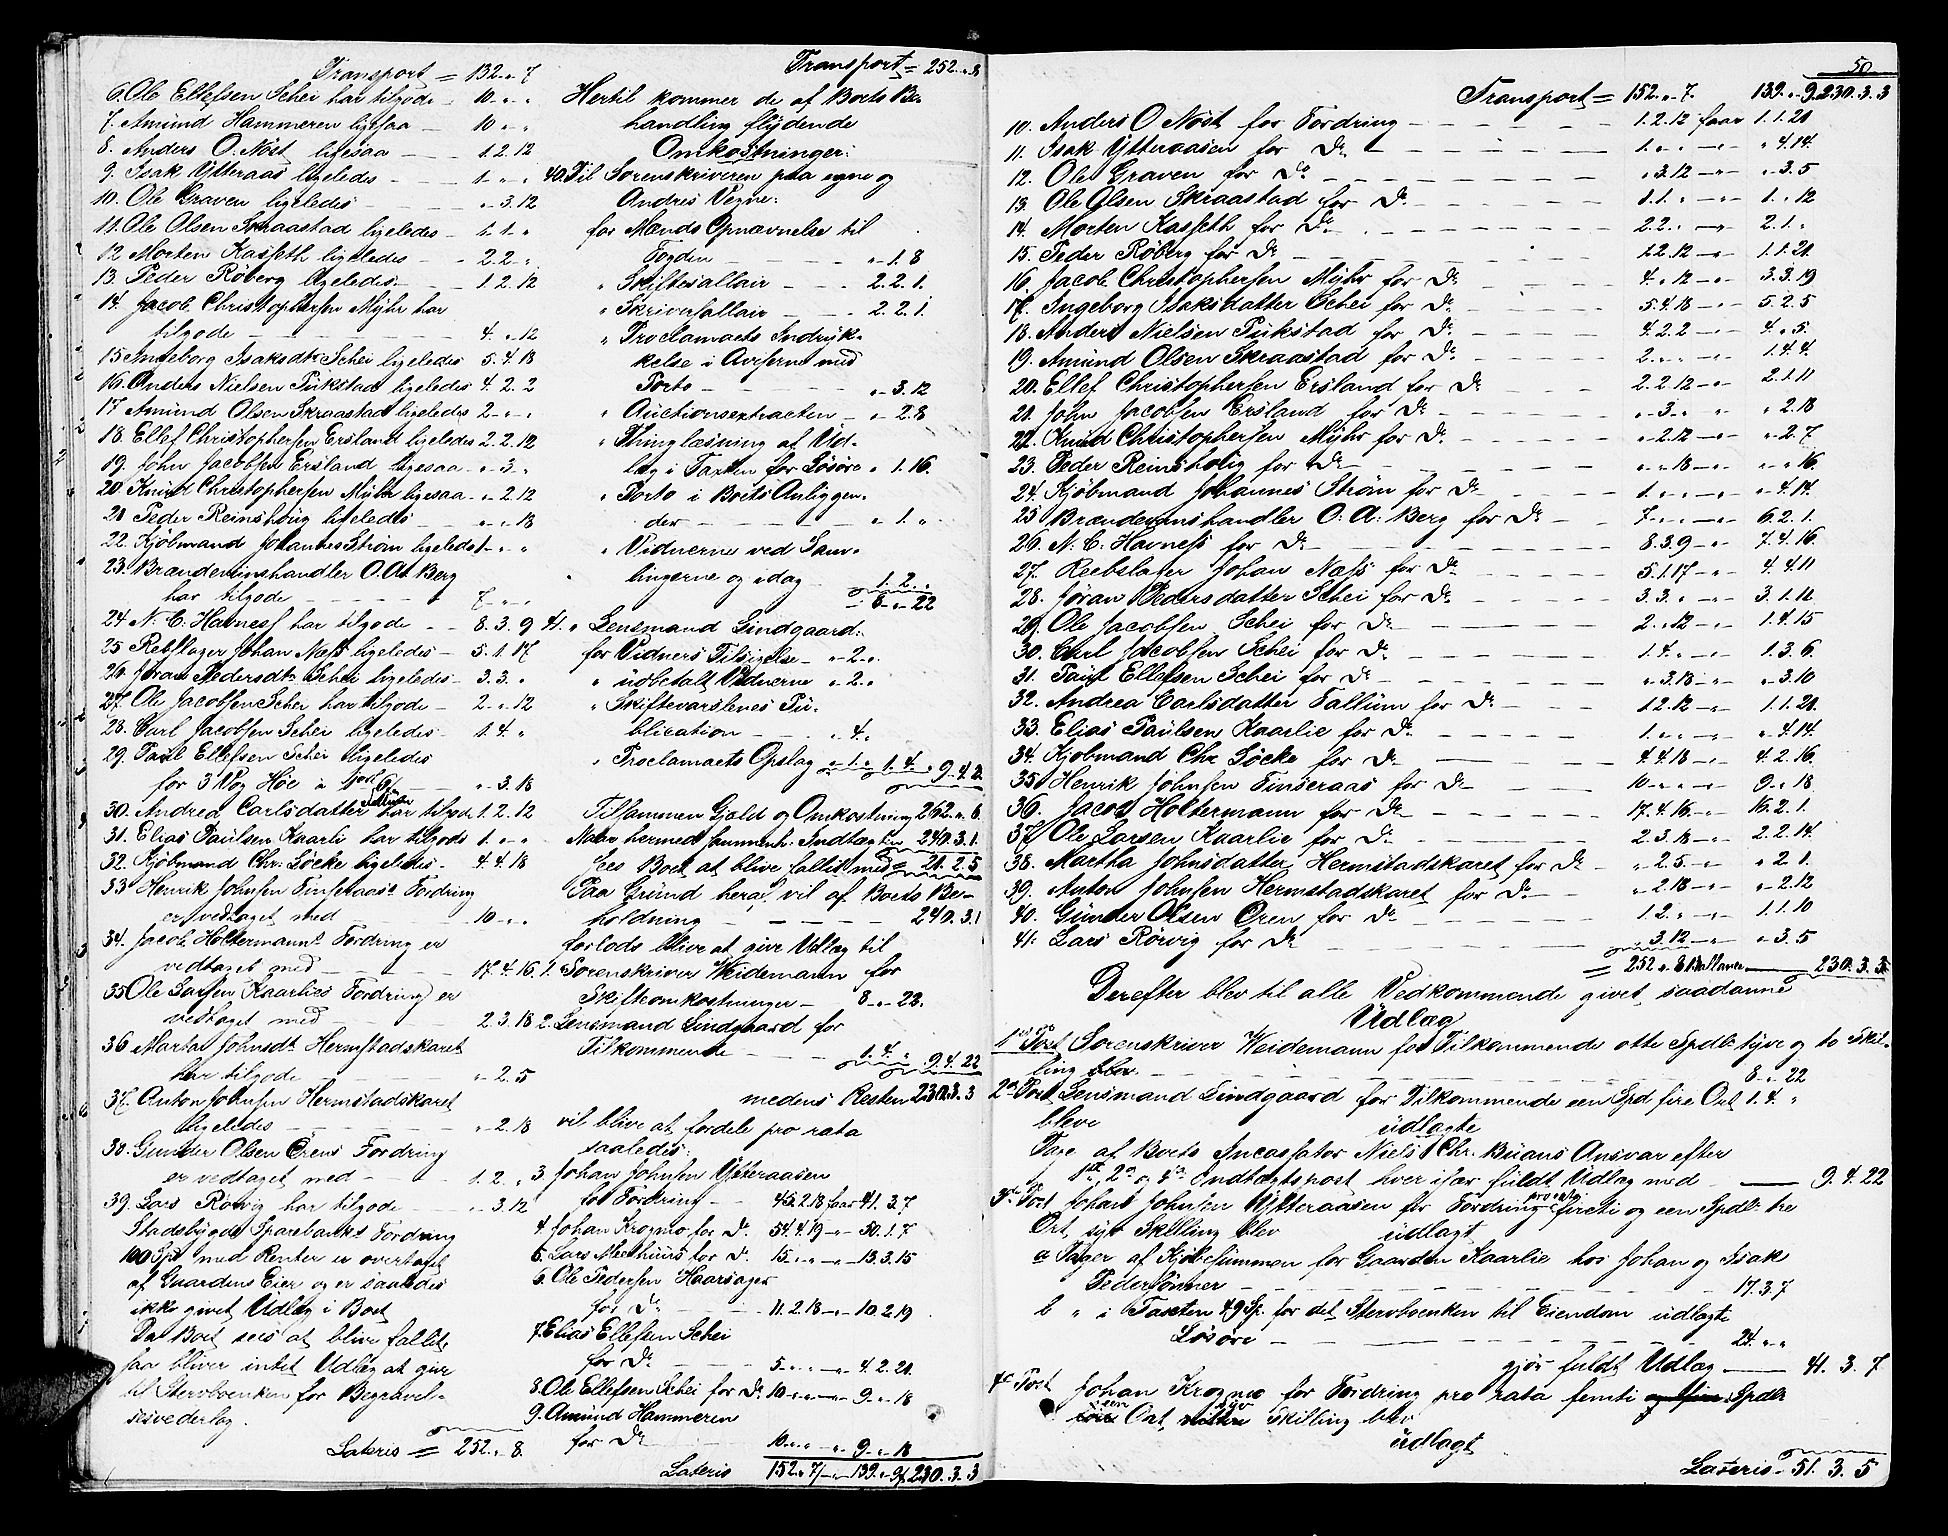 Transport = 132 „ 7
6. Ole Ellefsen Schei har tilgode — 10 „ „
7. Amund Hammeren ligesaa — 10 „ „
8. Anders O. Nøst ligesaa — 1. 2. 12
9. Isak Ytteraas ligeledes — 1 „ „
10. Ole Graven ligeledes — „ 3. 12
11. Ole Olsen Skraastad ligeledes — 1. 1. „
12 Morten Kasseth ligeledes — 2. 2. „
13. Peder Røberg ligeledes — 1. 2. 12
14. Jacob Christophersen Myhr har
tilgode — 4. „ 12
15 Ingeborg Isaksdtr Schei ligeledes 5. 4. 18
16. Anders Nielsen Pukstad ligeledes 4. 2. 2
17 Amund Olsen Skraastad ligeledes 2 „ „
18. Ellef Christophersen Ersland ligeledes 2. 2. 12
19. John Jacobsen Ersland ligesaa „ 3. „
20 Knud Christophersen Myhr ligesaa „ 2. 12
21 Peder Reinshoug ligeledes „ „ 18
22. Kjøbmand Johannes Strøm ligeledes 1 „ „
23. Brændevinshandler O. A. Berg
har tilgode — 7 „ „
24 N. C. Havness har tilgode — 8. 3. 9
25 Rebslager Johan Næss ligeledes — 5. 1. 17
26. Jøran Pedersdtr Schei ligeledes — 3. 3. „
27. Ole Jacobsen Schei har tilgode — 2 „ 12
28. Carl Jacobsen Schei ligeledes — 1. 4 „
29. Paul Ellefsen Schei ligeledes
for 3 Vog Høe — „ 3. 18
30. Andrea Carlsdatter Fallium har tilgode 1. 2. 12
31. Elias Paulsen Kaarli har tilgode 1. „ „
32. Kjøbmand Chr. Løcke ligeledes — 4. 4. 18
33 Henrik Johnsen Finseraas' Fordring
er vedtaget med — 10 „ „
34. Jacob Holtermanns Fordring er
vedtaget med — 17. 4. 16.
35 Ole Larsen Kaarlies Fordring er
vedtaget med — 2. 3. 18
36 Marta Johnsdtr Hermstadskaret
har tilgode — „ 2. 5
37. Anton Johnsen Hermstadskaret
ligeledes — „ 2. 18
38. Gunder Olsen Ørens Fordring
er vedtaget med — 1. 2. „
39. Lars Rørvig har tilgode — „ 3. 12
Stadsbygdens Sparebanks Fordring
100 Spd med Renter er overtaget
af Gaardens Eier og er saaledes
ikke givet Udlæg i Boet
Da Boet sees at blive fallit,
saa bliver intet Udlæg at give
til Stervboenken for Begravel-
sesvederlag.
Lateris = 252. „ 8.
Transport = 252. „ 8
Hertil kommer de af Boets Be-
handling flydende
Omkostninger:
40. Til Sorenskriveren paa egne og
Andres Vegne:
for Mænds Opnævnelse til
Fogden — „ 1. 8
„ Skiftesallair — 2. 2. 1.
„ Skriversallair — 2. 2. 1.
„ Proclamaets Indryk-
kelse i Aviserne med
Porto — „ 3. 12
„ Auctionsextracten — „ 2. 8
„ Thinglæsning af Ud-
læg i Taxten for Løsøre „ 1. 16.
„ Porto i Boets Anliggen-
der — „ 1. „
„ Vidnerne ved Sam-
lingerne og idag — 1. 2. „
8. „ 22
41. „ Lensmand Lindgaard:
for Vidners Tilsigelse — „ 2. „
„ udbetalt Vidnerne „ 2. „
„ Skiftevarslenes Pu-
blication — „ 4. „
„ Proclamaets Opslag „ 1. „ 1. 4. „ 9. 4. 22
Tilsammen Gjæld og Omkostning 262. „ 6.
Naar hermed sammenh. Indtægten 240. 3. 1.
sees Boet at blive fallit med = 21. 2. 5
Paa Grund heraf vil af Boets Be-
holdning — 240. 3. 1
forlods blive at give Udlæg til
1. Sorenskriver Weidemann for
Skifteomkostninger — 8 „ 22.
2. Lensmand Lindgaard for
Tilkommende — 1. 4. „ 9. 4. 22
medens Resten 230. 3. 3
vil blive at fordele pro rata
saaledes:
3 Johan Johnsen Ytteraasen
for Fordring — 45. 2. 18 faar 41. 3. 7
4 Johan Krogmo for Do 54. 4. 19 — „ 50. 1. 7
5. Lars Meethuus for Do 15 „ „ — „ 13. 3. 15
6. Ole Pedersen Haarsager
for Do — 11. 2. 18 — „ 10. 2. 19
7. Elias Ellefsen Schei
for Do — 5 „ „ — „ 4. 2. 21
8. Ole Ellefsen Schei for Do 10 „ „ — 9 „ 18
9. Amund Hammeren
for Do — 10. „ „ — „ 9. „ 18
Lateris 152. „ 7 — „ 139. „ 9 230. 3. 3
50
Transport = 152. „ 7. 139. „ 9. 230. 3. 3
10. Anders O Nøst for Fordring — 1. 2. 12 faar 1. 1. 21
11. Isak Ytteraasen for Do — 1. „ „ — „ „ 4. 14.
12. Ole Graven for Do — „ 3. 12 — „ „ 3. 5
13. Ole Olsen Skraastad for Do — 1. 1. „ — „ 1. „ 12
14. Morten Kasseth for Do — 2. 2. „ — „ 2. 1. „
15. Peder Røberg for Do — 1. 2. 12 — „ 1. 1. 21.
16. Jacob Christophersen Myhr for Do — 4. „ 12 — „ 3. 3. 19
17. Ingeborg Isaksdatter Schei for Do — 5. 4. 18 — „ 5. 2. 5
18. Anders Nielsen Pukstad for Do — 4. 2. 2 — „ 4. „ 5.
19. Amund Olsen Skraastad for Do — 2. „ „ — „ 1. 4. 4.
20. Ellef Christophersen Ersland for Do — 2. 2. 12 — „ 2. 1. 11
21. John Jacobsen Ersland for Do — „ 3. „ — „ „ 2. 18
22. Knud Christophersen Myhr for Do — „ 2. 12 — „ „ 2. 7
23. Peder Reinshoug for Do — „ „ 18 — „ „ „ 16.
24. Kjøbmand Johannes Strøm for Do — 1. „ „ — „ „ 4. 14.
25 Brændevinshandler O. A. Berg for Do — 7 „ „ — „ 6. 2. 1.
26. N. C. Havness for Do — 8. 3. 9 — „ 7. 4. 16.
27. Reebslager Johan Næss for Do — 5. 1. 17 — „ 4. 4. 11
28. Jøran Pedersdatter Schei for Do — 3. 3. „ — „ 3. 1. 11
29. Ole Jacobsen Schei for Do — 2. „ 12 — „ 1. 4. 15
30. Carl Jacobsen Schei for Do — 1. 4. „ — „ 1. 3. 6.
31. Paul Ellefsen Schei for Do — „ 3. 18 — „ „ 3. 10
32. Andrea Carlsdatter Fallium for Do — 1. 2. 12 — „ 1. 1. 21.
33. Elias Paulsen Kaarlie for Do — 1. „ „ — „ „ 4. 14.
34. Kjøbmand Chr. Løcke for Do — 4. 4. 18 — „ 4. 2. 16.
35 Henrik Johnsen Finseraas for Do — 10 „ „ — „ 9. „ 18.
36. Jacob Holtermann for Do — 17. 4. 16. — „ 16. 2. 1.
37. Ole Larsen Kaarlie for Do — 2. 3. 18 — „ 2. 2. 14.
38. Martha Johnsdatter Hermstadskaret for Do — „ 2. 5. — „ „ 2. 1.
39. Anton Johnsen Hermstadskaret for Do — „ 2. 18 — „ „ 2. 12
40. Gunder Olsen Øren for Do — 1. 2. „ — „ 1. 1. 10
41. Lars Rørvig for Do — „ 3. 12 — „ „ 3. 5
= 252. „ 8 — 230. 3. 3.
Derefter blev til alle Vedkommende givet saadanne
Udlæg
1ste Post Sorenskriver Weidemann for Tilkommende otte Spdlr tyve og to Skil-
ling blev — 8 „ 22
2den Post Lensmand Lindgaard for Tilkommende een Spd fire Ort 1. 4. „
bleve udlagte
Tage af Boets Incassator Niels Chr. Buans Ansvar efter
1ste, 2den og 4de Indtægtspost hver især fuldt Udlæg med — 9. 4. 22
3die Post Johan Johnsen Ytteraasen for Fordring pro rata firti og een Spdlr tre
Ort, syv Skilling blev udlagt
a Tager af Kjøbesummen for Gaarden Kaarlie hos Johan og Isak
Pedersønner — 17. 3. 7
b „ i Taxten 49 Sp. for det Stervboenken til Eiendom udlagte
Løsøre — 24. „ „
gjør fuldt Udlæg — 41. 3. 7
4de Post Johan Krogmo for Fordring pro rata femti Spdlr
een Ort, syv Skilling blev
udlagt
Lateris 51. 3. 5